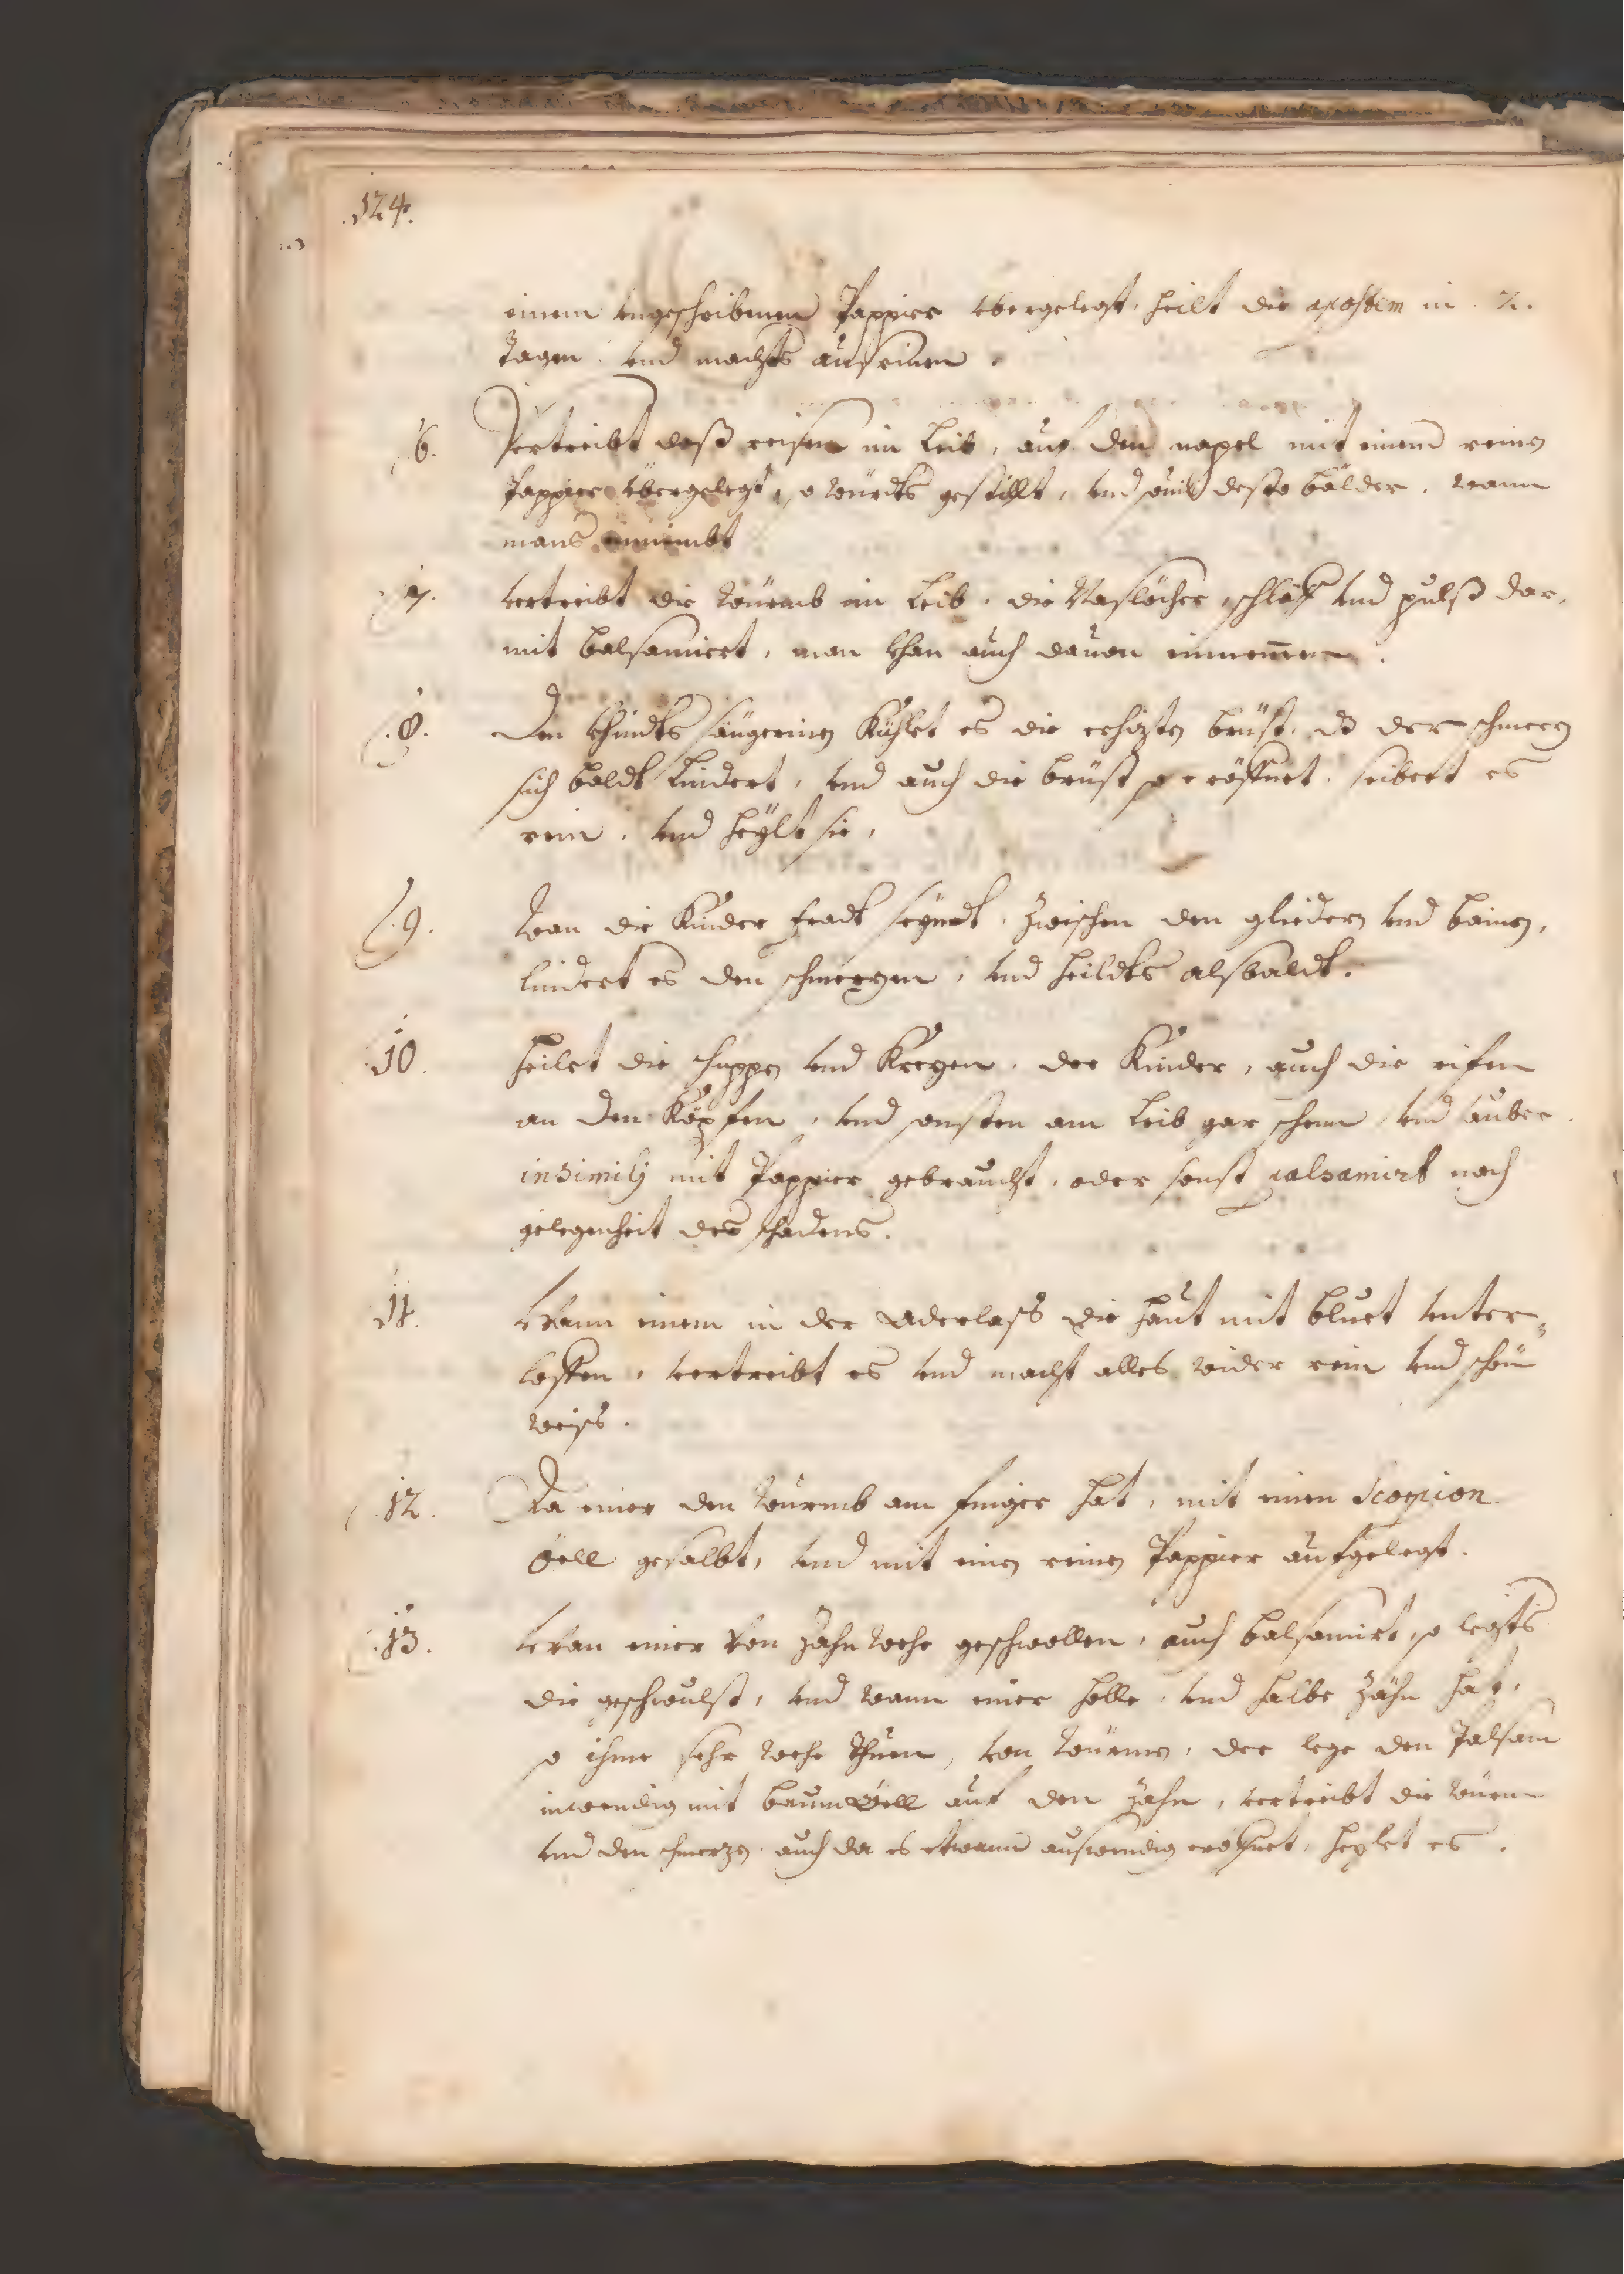 .124.
einem vngeschribenen Pappier vbergelegt, heilt die apostem in . 2.
Tagen . vnd machts außrinen .
6. Vertreibt daß reisen im Leib, auf den napel mit einem reinen
Pappier vbergelegt, so würdts gestillt, vnd souil desto bälder, wann
mans einnimbt
7. vertreibt die Würmb im Leib, die Naslöcher, schläf vnd pulß dar,
mit balsamiert, man khan auch dauon einnemen .
.8. Den khindts säugerinen Kühlet es die erhizten brüst, dz der schmerz
sich baldt Lindert, vnd auch die brüst so eröffnet, seibert es
rein, vnd heÿlt sie,
.9. Wan die Kinder fradt seÿndt, zwischen den gliedern vnd bainen,
lindert es den schmerzen, vnd heildts alsbaldt.
10. heilet die schuppen vnd Krezen, der Kinder, auch die rifen
an den Köpfen, vnd sonsten am Leib gar schenn, vnd sauber.
in simili mit Pappier gebraucht, oder sonst palsamirt nach
gelegenheit des schadens.
11. Wann einem in der Aderlass die haut mit bluet vnter-
loffen, vertreibt es vnd macht alles wider rein vnd schön
weiss.
12. Da einer den Wurmb am finger hat, mit einen Scorpion
Öell gesalbt, vnd mit einen reinen Pappier aufgelegt.
.13. Wan einer von Zahn Wehe geschwollen, auch balsamirt, so legts
die geschwulst, vnd wann einer holle, vnd halbe Zähn hat,
so ihme sehr wehe thuen, von Würmen, der lege den Palsam
inwendig mit baumöell auf den Zahn, vertreibt die würm
vnd den schmerzen auch da es etwann auswendig eröffnet, heylet es .